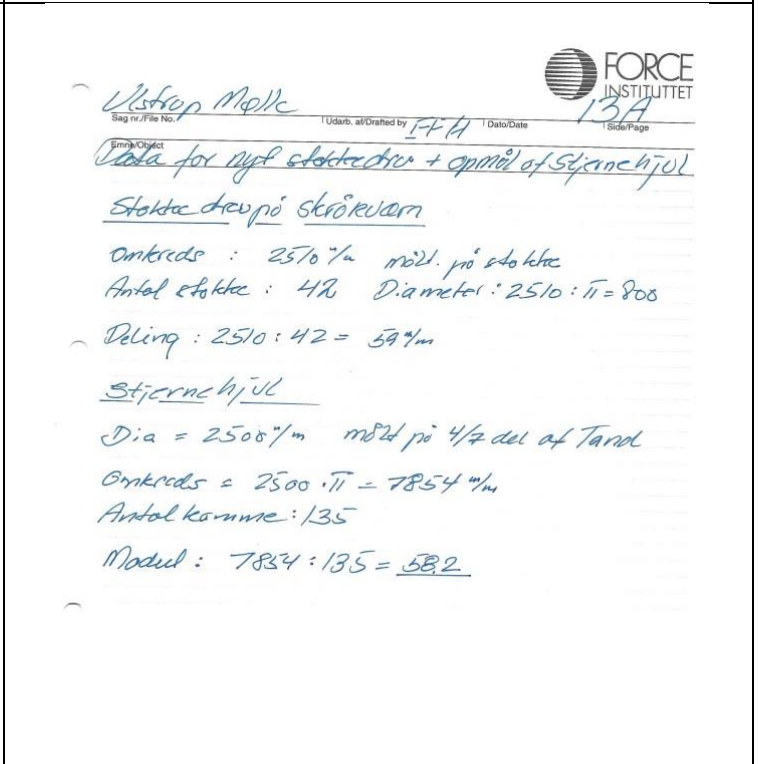 FORCE
INSTITUTTET
Ulstrup Mølle
13A
Sag nr./File No. Udarb. af/Drafted by FFH Dato/Date Side/Page
Emne/Object
Data for nyt stokkedrev + opmål af Stjernehjul
Stokke drev på skråkværn
Omkreds : 2510 m/m målt. på stokke
Antal stokke : 42 Diameter : 2510 : π = 800
Deling : 2510 : 42 = 59 m/m
Stjernehjul
Dia = 2500 m/m målt på 4/7 del af Tand
Omkreds = 2500 · π = 7854 m/m
Antal kamme : 135
Modul : 7854 : 135 = 58.2